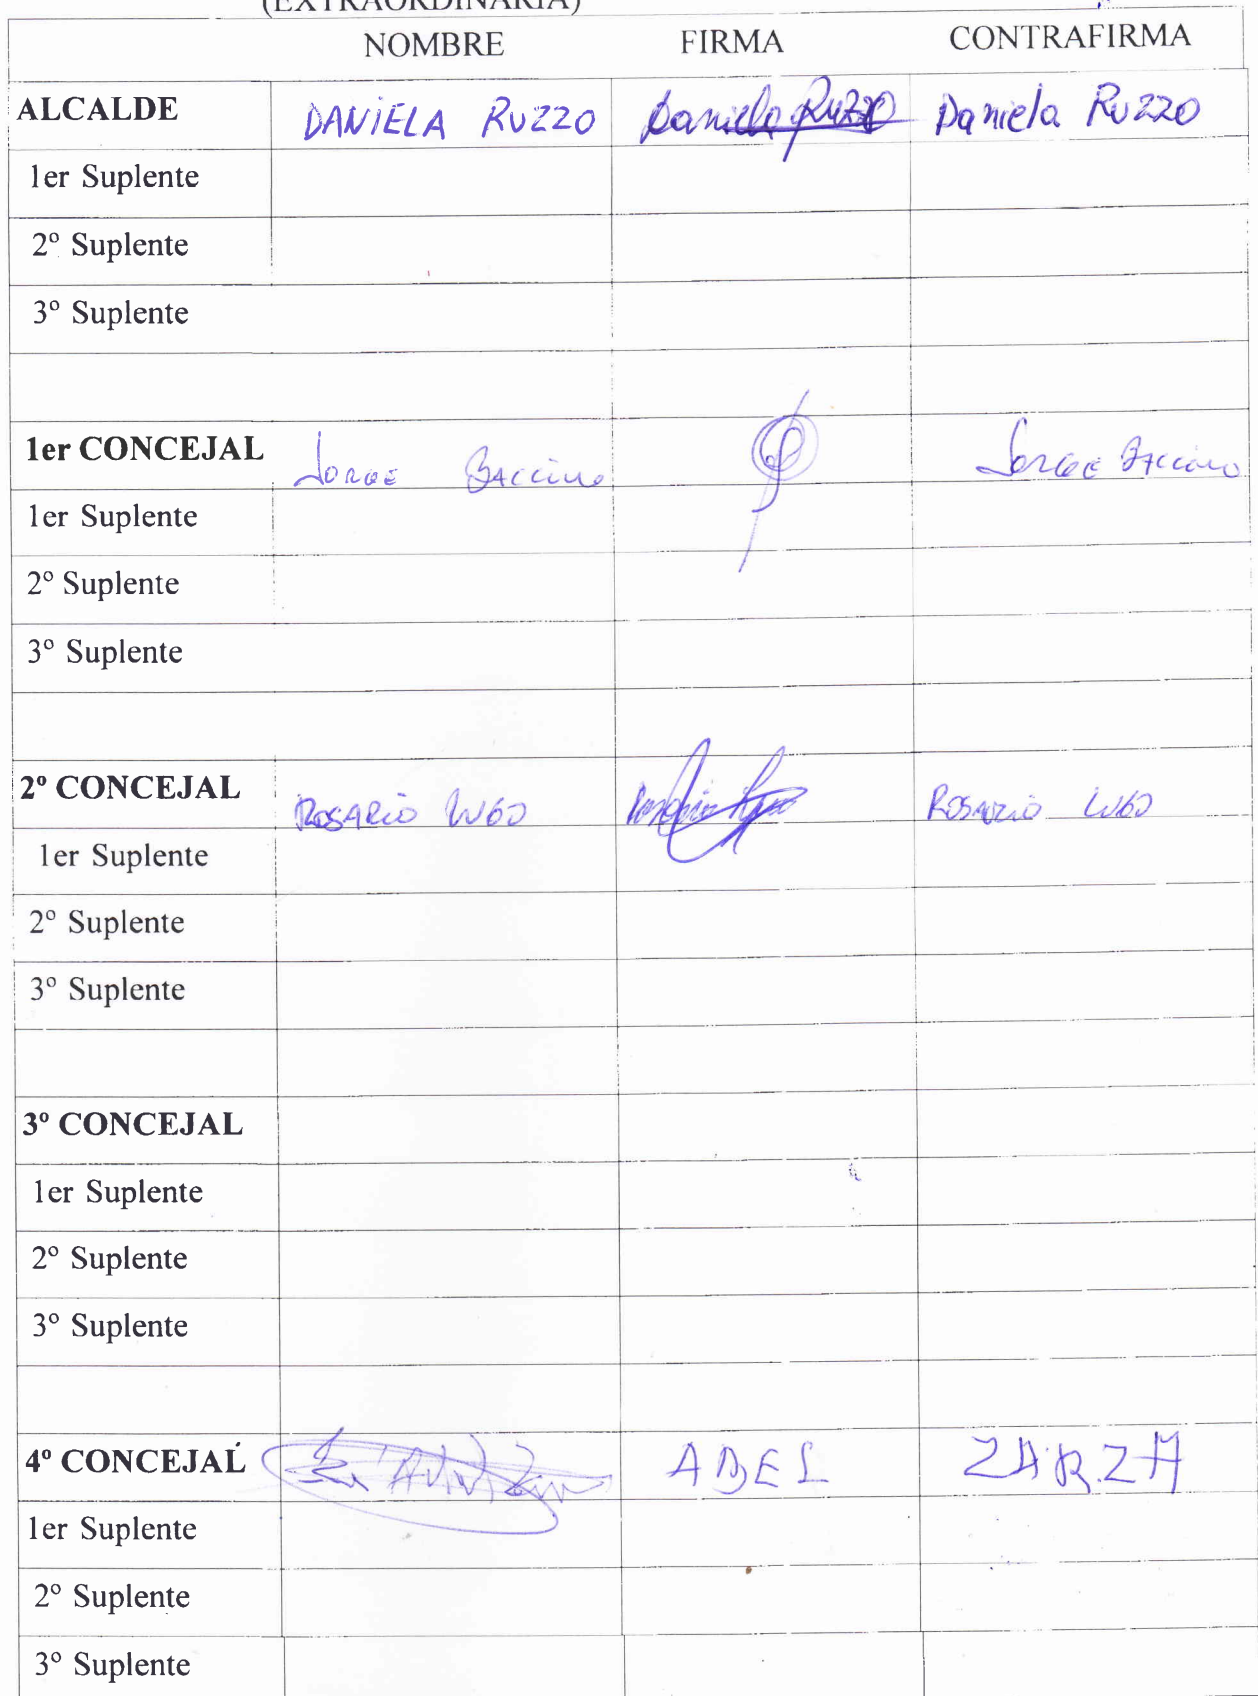 (EXTRAORDINARIA)
NOMBRE FIRMA CONTRAFIRMA
ALCALDE DANIELA RUZZO Daniela Ruzzo Daniela Ruzzo
1er Suplente
2º Suplente
3º Suplente
1er CONCEJAL JORGE BACCINO JORGE BACCINO
1er Suplente
2º Suplente
3º Suplente
2º CONCEJAL ROSARIO LUGO ROSARIO LUGO
1er Suplente
2º Suplente
3º Suplente
3º CONCEJAL
1er Suplente
2º Suplente
3º Suplente
4º CONCEJAL ABEL ZARZA
1er Suplente
2º Suplente
3º Suplente